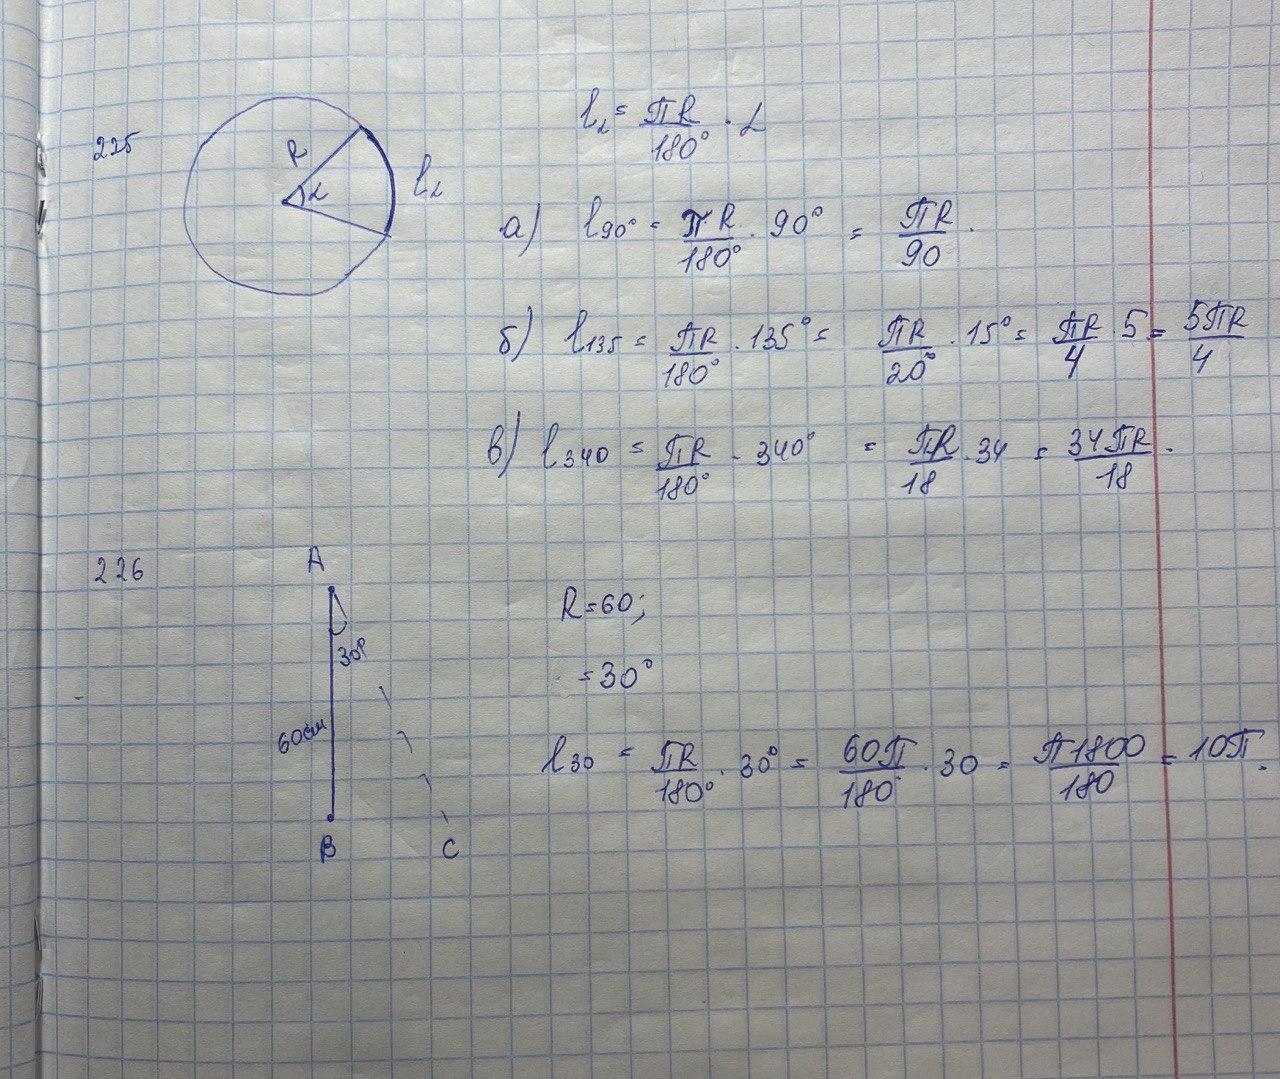 225
R
α
lα
lα = πR/180° · α
а) l90° = πR/180° · 90° = πR/90.
б) l135 = πR/180° · 135° = πR/20° · 15° = πR/4 · 5 = 5πR/4
в) l340 = πR/180° · 340° = πR/18 · 34 = 34πR/18.
226
A
30°
60см
B
C
R=60;
=30°
l30 = πR/180° · 30° = 60π/180 · 30 = π1800/180 = 10π.